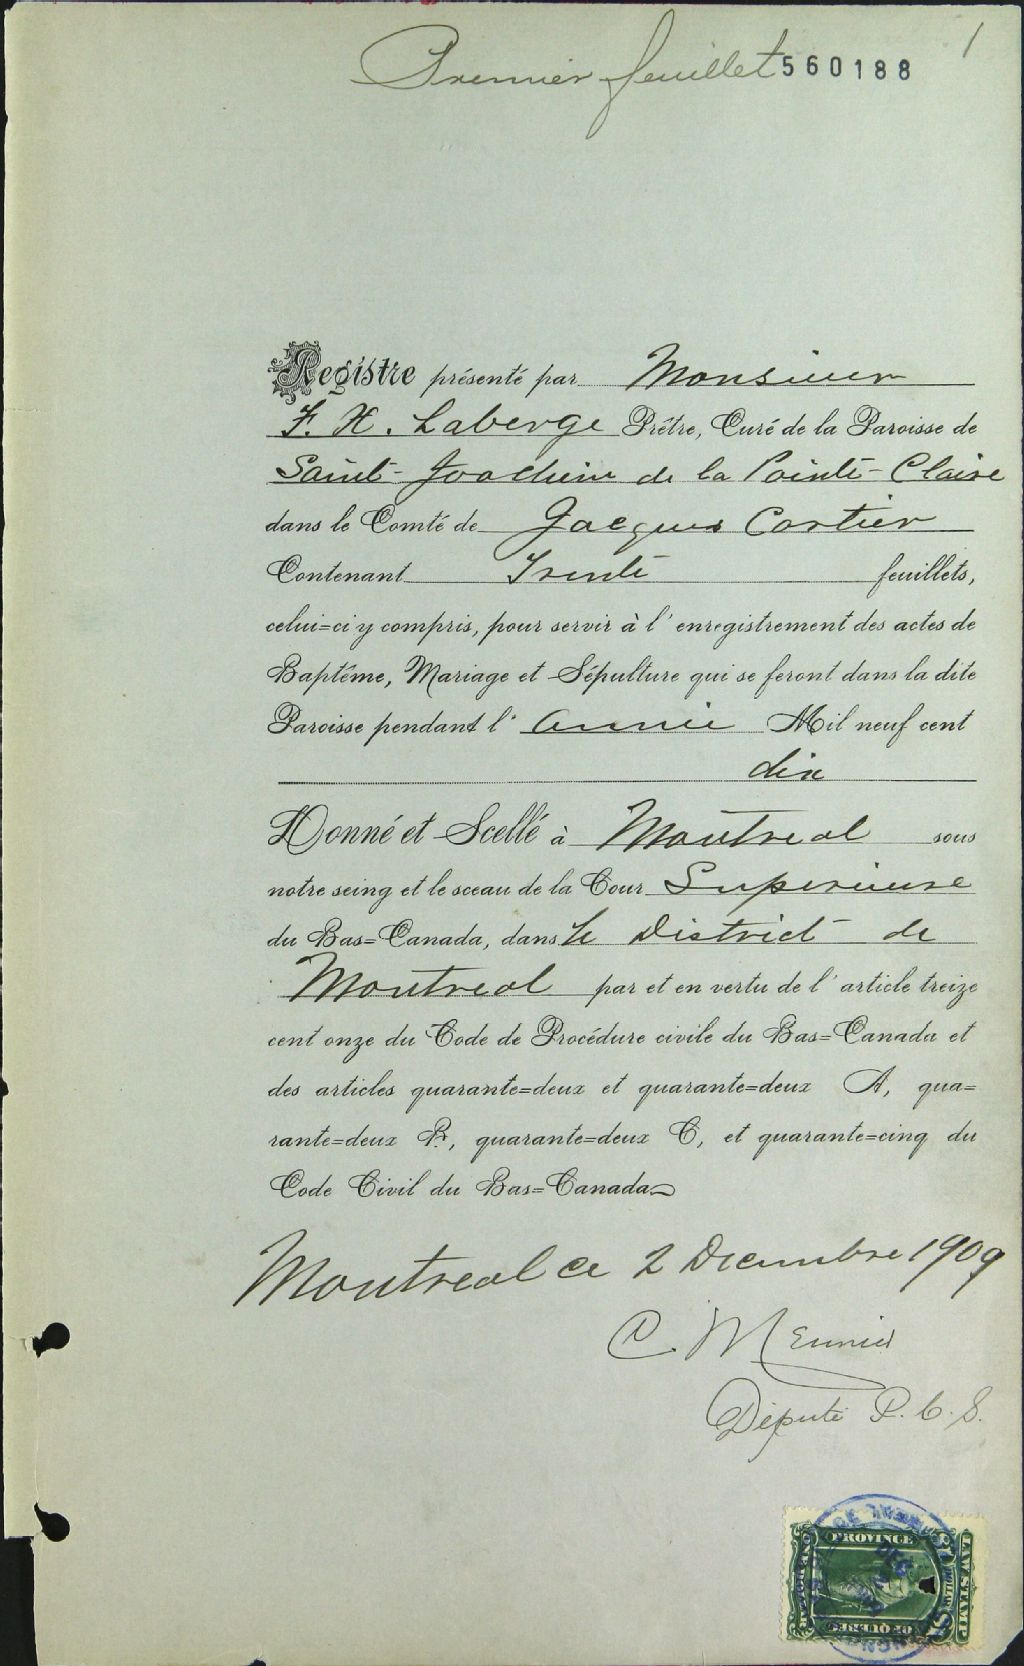 Premier feuillet 560188 1
Registre présenté par Monsieur
F. H. Laberge Prêtre, Curé de la Paroisse de
Saint-Joachim de la Pointe-Claire
dans le Comté de Jacques Cartier
Contenant Trente feuillets,
celui=ci y compris, pour servir à l'enregistrement des actes de
Baptême, Mariage et Sépulture qui se feront dans la dite
Paroisse pendant l'année Mil neuf cent
dix
Donné et Scellé à Montreal sous
notre seing et le sceau de la Cour Superieure
du Bas=Canada, dans le District de
Montreal par et en vertu de l'article treize
cent onze du Code de Procédure civile du Bas=Canada et
des articles quarante=deux et quarante=deux A, qua=
rante=deux B, quarante=deux C, et quarante=cinq du
Code Civil du Bas=Canada
Montreal ce 2 Decembre 1909
C. Meunier
Député P. C. S.
PROVINCE
OF QUEBEC
LAW STAMP
DEC